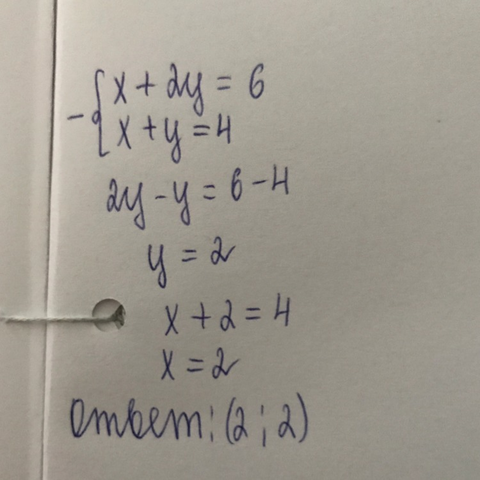 - { x + 2y = 6
x + y = 4
2y - y = 6 - 4
y = 2
x + 2 = 4
x = 2
Ответ: (2; 2)